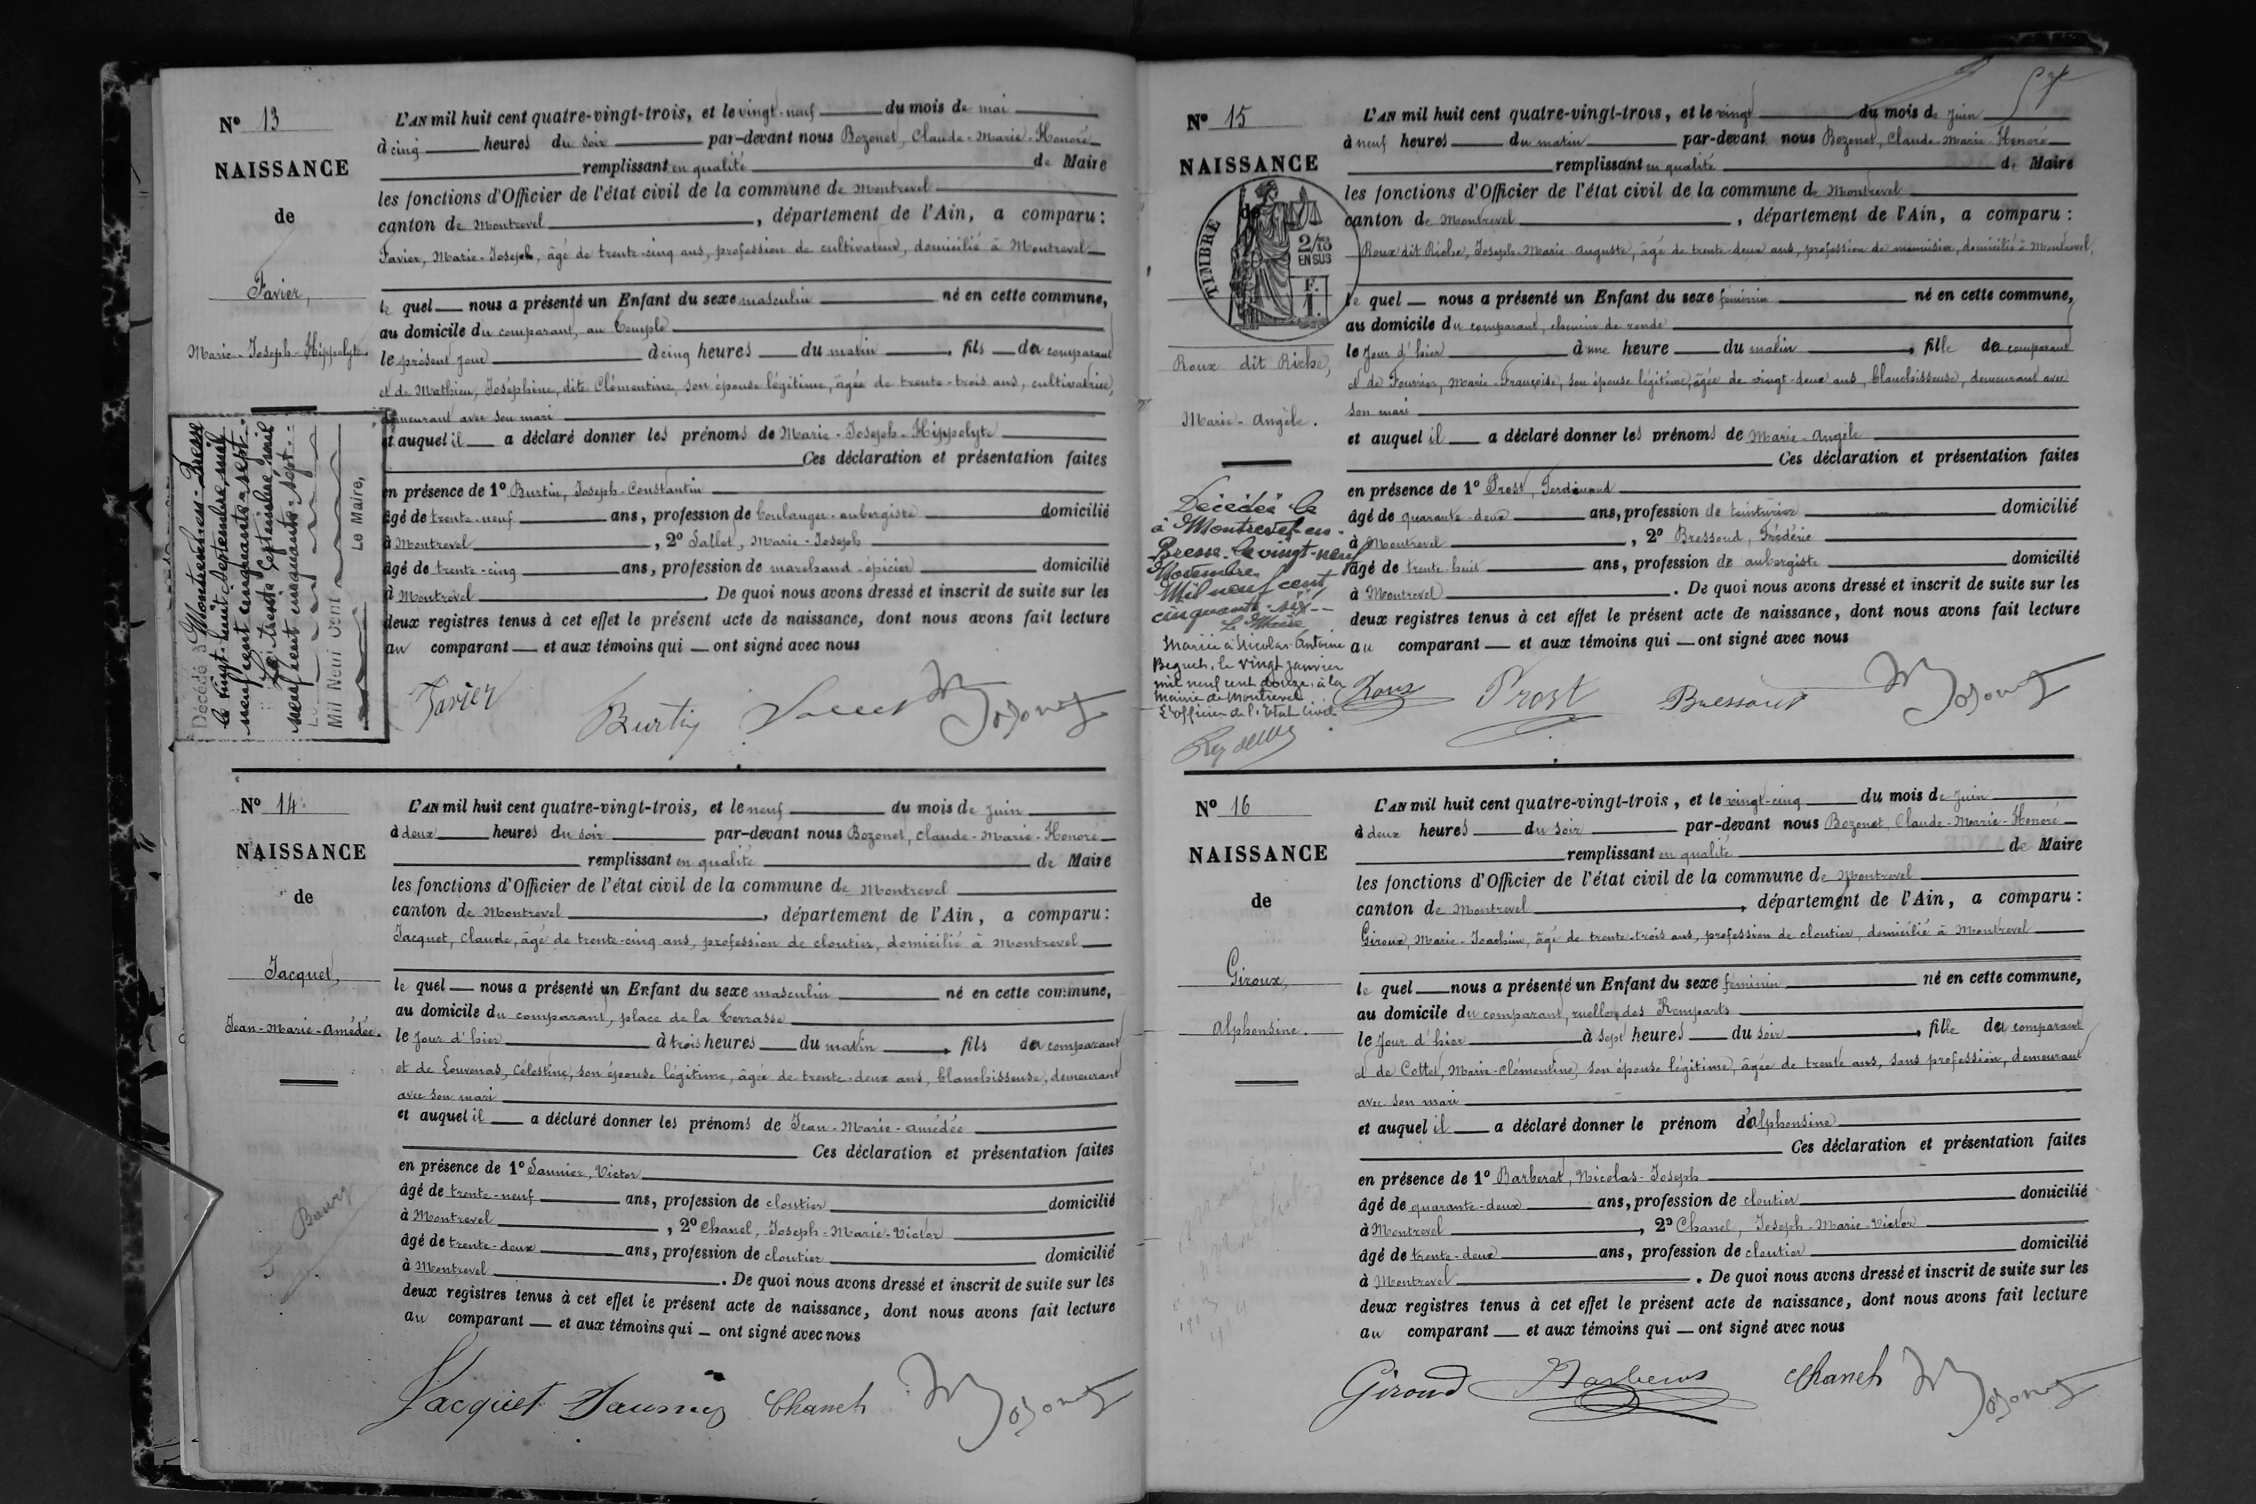 N° 13
NAISSANCE
de
Favier,
Marie-Joseph-Hippolyte.
L'AN mil huit cent quatre-vingt-trois, et le vingt-neuf du mois de mai
à cinq heures du soir par-devant nous Bozonet, Claude-Marie-Honoré
remplissant en qualité de Maire
les fonctions d'Officier de l'état civil de la commune de Montrevel
canton de Montrevel, département de l'Ain, a comparu :
Favier, Marie-Joseph, âgé de trente-cinq ans, profession de cultivateur, domicilié à Montrevel
le quel nous a présenté un Enfant du sexe masculin né en cette commune,
au domicile du comparant, au Temple
le présent jour à cinq heures du matin, fils du comparant
et de Mathieu, Joséphine, dite Clémentine, son épouse légitime, âgée de trente-trois ans, cultivatrice,
demeurant avec son mari
et auquel il a déclaré donner les prénoms de Marie-Joseph-Hippolyte
Ces déclaration et présentation faites
en présence de 1° Burtin, Joseph-Constantin
âgé de trente-neuf ans, profession de boulanger-aubergiste domicilié
à Montrevel, 2° Sallet, Marie-Joseph
âgé de trente-cinq ans, profession de marchand-épicier domicilié
à Montrevel. De quoi nous avons dressé et inscrit de suite sur les
deux registres tenus à cet effet le présent acte de naissance, dont nous avons fait lecture
au comparant et aux témoins qui ont signé avec nous
Favier Burtin Sallet Bozonet
Décédé à Montrevel-en-Bresse
le vingt-huit septembre mil
neuf cent cinquante-sept.
Le trente Septembre mil
neuf cent cinquante-sept
Mil Neuf Cent
Le Maire,
N° 14
NAISSANCE
de
Jacquet,
Jean-Marie-Amédée.
Bourg
L'AN mil huit cent quatre-vingt-trois, et le neuf du mois de juin
à deux heures du soir par-devant nous Bozonet, Claude-Marie-Honoré
remplissant en qualité de Maire
les fonctions d'Officier de l'état civil de la commune de Montrevel
canton de Montrevel, département de l'Ain, a comparu :
Jacquet, Claude, âgé de trente-cinq ans, profession de cloutier, domicilié à Montrevel
le quel nous a présenté un Enfant du sexe masculin né en cette commune,
au domicile du comparant, place de la Terrasse
le jour d'hier à trois heures du matin, fils du comparant
et de Louvenas, Célestine, son épouse légitime, âgée de trente-deux ans, blanchisseuse, demeurant
avec son mari
et auquel il a déclaré donner les prénoms de Jean-Marie-Amédée
Ces déclaration et présentation faites
en présence de 1° Saunier, Victor
âgé de trente-neuf ans, profession de cloutier domicilié
à Montrevel, 2° Chanel, Joseph-Marie-Victor
âgé de trente-deux ans, profession de cloutier domicilié
à Montrevel. De quoi nous avons dressé et inscrit de suite sur les
deux registres tenus à cet effet le présent acte de naissance, dont nous avons fait lecture
au comparant et aux témoins qui ont signé avec nous
Jacquet Saunier Chanel Bozonet
N° 15
NAISSANCE
de
TIMBRE
2/10 EN SUS
F. 1.
Roux dit Riche,
Marie-Angèle.
L'AN mil huit cent quatre-vingt-trois, et le vingt du mois de juin
à neuf heures du matin par-devant nous Bozonet, Claude-Marie-Honoré
remplissant en qualité de Maire
les fonctions d'Officier de l'état civil de la commune de Montrevel
canton de Montrevel, département de l'Ain, a comparu :
Roux dit Riche, Joseph-Marie-Auguste, âgé de trente-deux ans, profession de menuisier, domicilié à Montrevel,
le quel nous a présenté un Enfant du sexe féminin né en cette commune,
au domicile du comparant, chemin de ronde
le jour d'hier à une heure du matin, fille du comparant
et de Fourrier, Marie-Françoise, son épouse légitime, âgée de vingt-deux ans, blanchisseuse, demeurant avec
son mari
et auquel il a déclaré donner les prénoms de Marie-Angèle
Ces déclaration et présentation faites
en présence de 1° Prost, Ferdinand
âgé de quarante-deux ans, profession de teinturier domicilié
à Montrevel, 2° Bressoud, Frédéric
âgé de trente-huit ans, profession de aubergiste domicilié
à Montrevel. De quoi nous avons dressé et inscrit de suite sur les
deux registres tenus à cet effet le présent acte de naissance, dont nous avons fait lecture
au comparant et aux témoins qui ont signé avec nous
Roux Prost Bressoud Bozonet
Décédée le
à Montrevel-en-
Bresse le vingt-neuf
Novembre
Mil neuf cent
cinquante-six
Le Maire
Mariée à Nicolas-Antoine
Beguet, le vingt janvier
mil neuf cent douze, à la
Mairie de Montrevel
L'officier de l'Etat civil
N° 16
NAISSANCE
de
Giroux,
Alphonsine.
L'AN mil huit cent quatre-vingt-trois, et le vingt-cinq du mois de juin
à deux heures du soir par-devant nous Bozonet, Claude-Marie-Honoré
remplissant en qualité de Maire
les fonctions d'Officier de l'état civil de la commune de Montrevel
canton de Montrevel, département de l'Ain, a comparu :
Giroux, Marie-Joachim, âgé de trente-trois ans, profession de cloutier, domicilié à Montrevel
le quel nous a présenté un Enfant du sexe féminin né en cette commune,
au domicile du comparant, ruelle des Remparts
le jour d'hier à sept heures du soir, fille du comparant
et de Cottet, Marie-Clémentine, son épouse légitime, âgée de trente ans, sans profession, demeurant
avec son mari
et auquel il a déclaré donner le prénom d'Alphonsine
Ces déclaration et présentation faites
en présence de 1° Barberat, Nicolas-Joseph
âgé de quarante-deux ans, profession de cloutier domicilié
à Montrevel, 2° Chanel, Joseph-Marie-Victor
âgé de trente-deux ans, profession de cloutier domicilié
à Montrevel. De quoi nous avons dressé et inscrit de suite sur les
deux registres tenus à cet effet le présent acte de naissance, dont nous avons fait lecture
au comparant et aux témoins qui ont signé avec nous
Giroud Chanel Bozonet